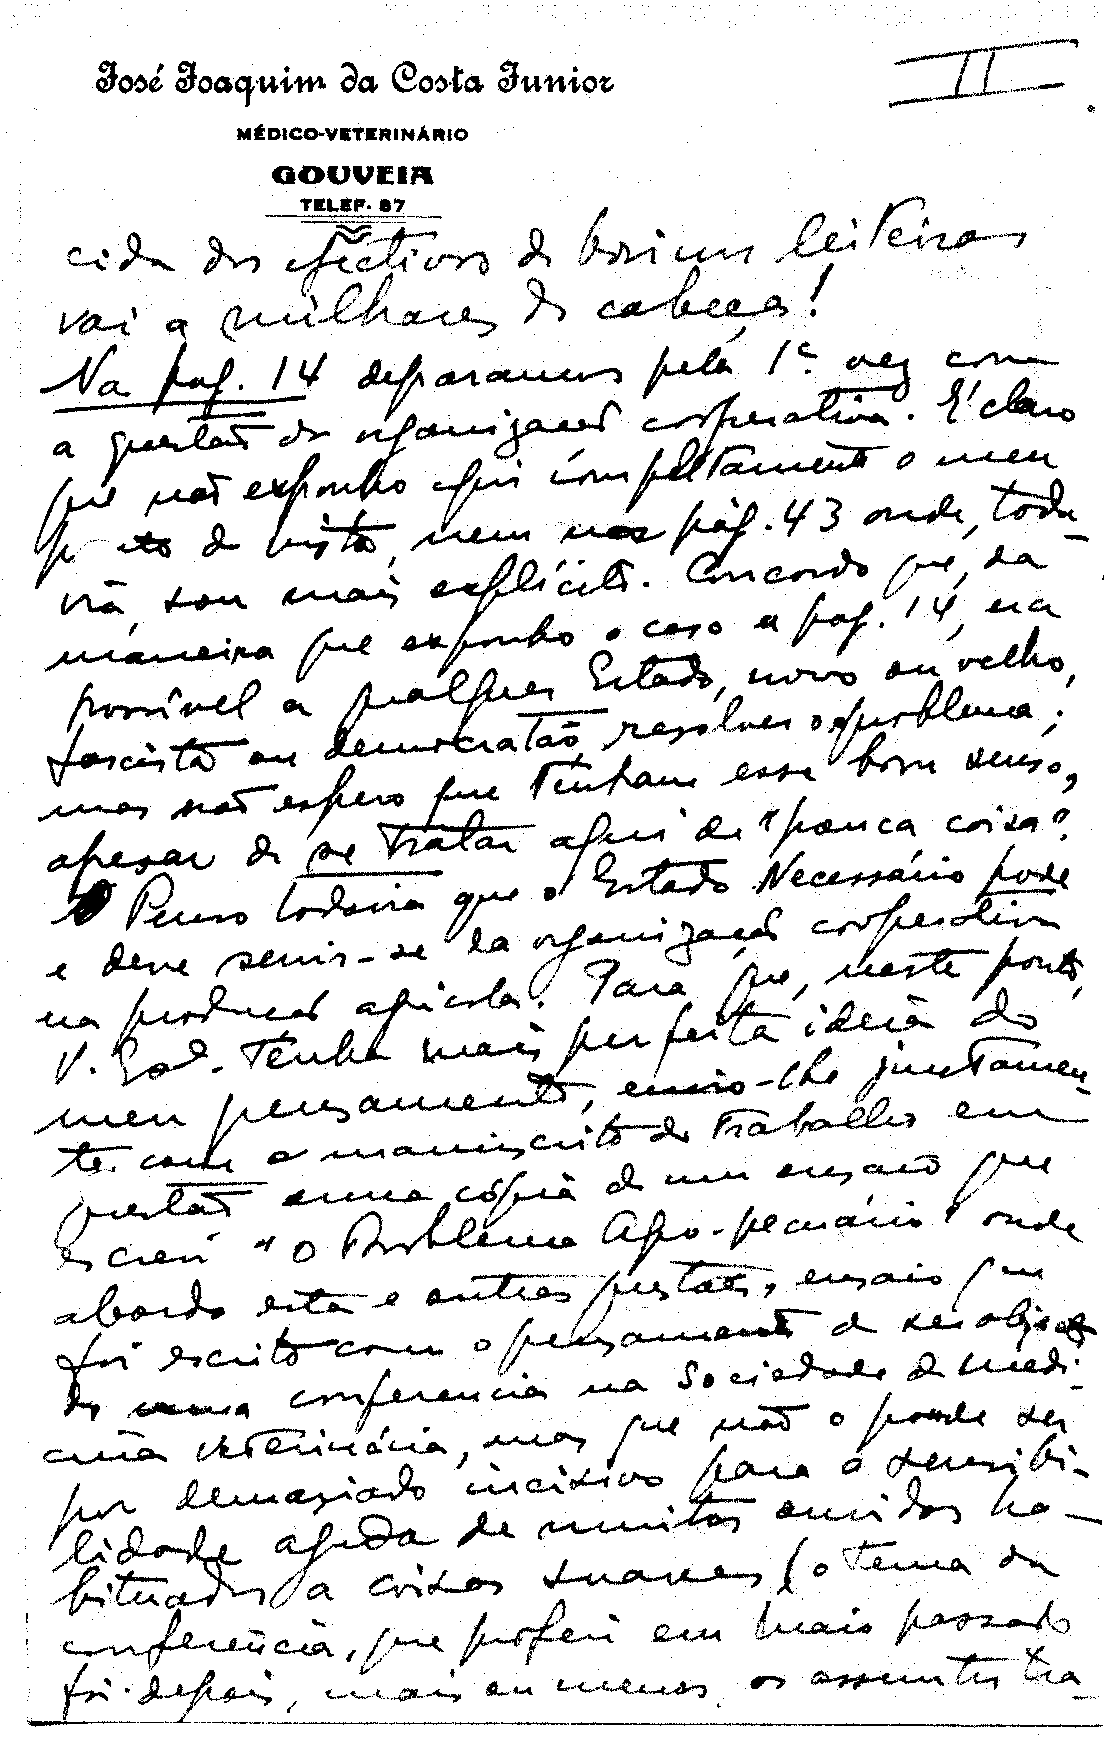 José Joaquim da Costa Junior
II
MÉDICO-VETERINÁRIO
GOUVEIA
TELEF. 87
cida dos efectivos de bovinos leiteiros
vai a milhares de cabeças!
Na pag. 14 deparamos pela 1ª vez com
a questão da organização cooperativa. É claro
que não exponho aqui completamente o meu
ponto de vista, nem na pág. 43 onde, toda-
via, sou mais explícito. Concordo que, da
maneira que exponho o caso a pag. 14, era
possível a qualquer Estado, novo ou velho,
fascista ou democratão, resolver o problema;
mas não espero que tenham esse bom senso,
apesar de se tratar aqui de "pouca coisa".
Penso todavia que o Estado Necessário pode
e deve servir-se da organização cooperativa
na produção agrícola. Para que, neste ponto,
V. Exª. tenha mais perfeita ideia do
meu pensamento, envio-lhe juntamen-
te com o manuscrito do trabalho em
questão uma cópia de um ensaio que
escrevi "O Problema Agro-pecuário" onde
abordo esta e outras questões, ensaio que
foi escrito com o pensamento de ser objecto
de uma conferencia na Sociedade de Medi-
cina Veterinária, mas que não o poude ser
por demasiado incisivo para a sensibi-
lidade aguda de muitos ouvidos ha-
bituados a coisas suaves (o tema da
conferência, que proferi em maio passado
foi depois, mais ou menos, os assuntos tra-